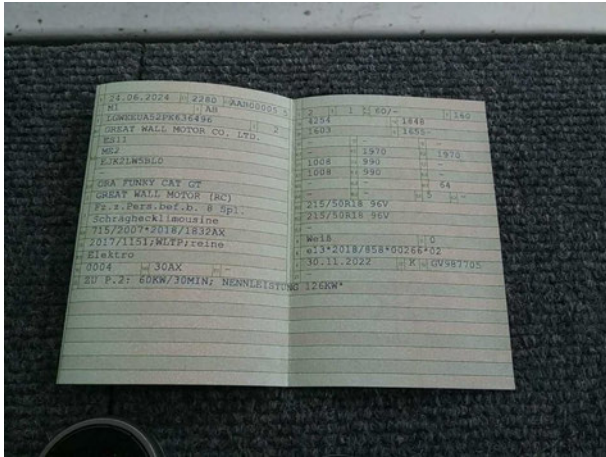 24.06.2024 2280 AAN00005 5
M1 AB
LGWEEUA52PK636496 2
GREAT WALL MOTOR CO. LTD.
ES11
ME2
EJK2LW5BL0
-
ORA FUNKY CAT GT
GREAT WALL MOTOR (RC)
Fz.z.Pers.bef.b. 8 Spl.
Schräghecklimousine
715/2007*2018/1832AX
2017/1151;WLTP;reine
Elektro
0004 30AX -
ZU P.2: 60KW/30MIN; NENNLEISTUNG 126KW*
2 1 60/- 160
4254 1848
1603 1655-
- - -
- 1970 1970
1008 990 -
1008 990 -
- - 64
- 5 -
215/50R18 96V
215/50R18 96V
-
Weiß 0
e13*2018/858*00266*02
30.11.2022 K GV987705